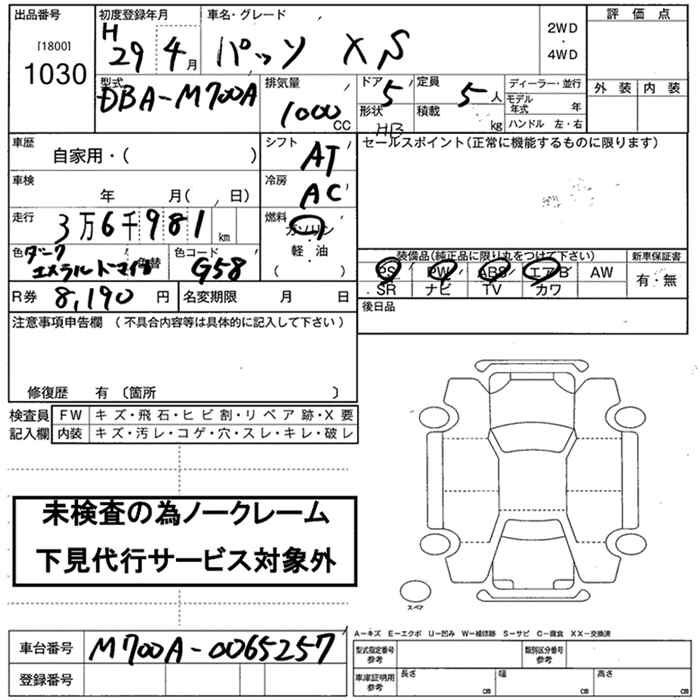 出品番号 初度登録年月 車名・グレード 評価点
[1800]
1030
H 29 4月 パッソ XS 2WD・4WD
外装 内装
型式 排気量 ドア 定員 ディーラー・並行
DBA-M700A 1000cc 5 5人 モデル年式 年
形状 積載 ハンドル 左・右
HB kg
車歴 シフト セールスポイント(正常に機能するものに限ります)
自家用・( ) AT
車検 冷房
年 月( 、日) AC
走行 燃料
3万6千981km ガソリン・軽油( )
色 色替 色コード 装備品(純正品に限り丸をつけて下さい) 新車保証書
ダーク
エメラルドマイカ G58 PS PW ABS エアB AW 有・無
SR ナビ TV カワ
R券 8,190円 名変期限 月 日 後日品
注意事項申告欄(不具合内容等は具体的に記入して下さい)
修復歴 有〔箇所 〕
検査員 FW キズ・飛石・ヒビ割・リペア跡・X要
記入欄 内装 キズ・汚レ・コゲ・穴・スレ・キレ・破レ
未検査の為ノークレーム
下見代行サービス対象外
スペア
A-キズ E-エクボ U-凹み W-補修跡 S-サビ C-腐食 XX-交換済
車台番号 M700A-0065257 型式指定番号 参考 類別区分番号 参考
登録番号 車庫証明用 参考 長さ cm 幅 cm 高さ cm